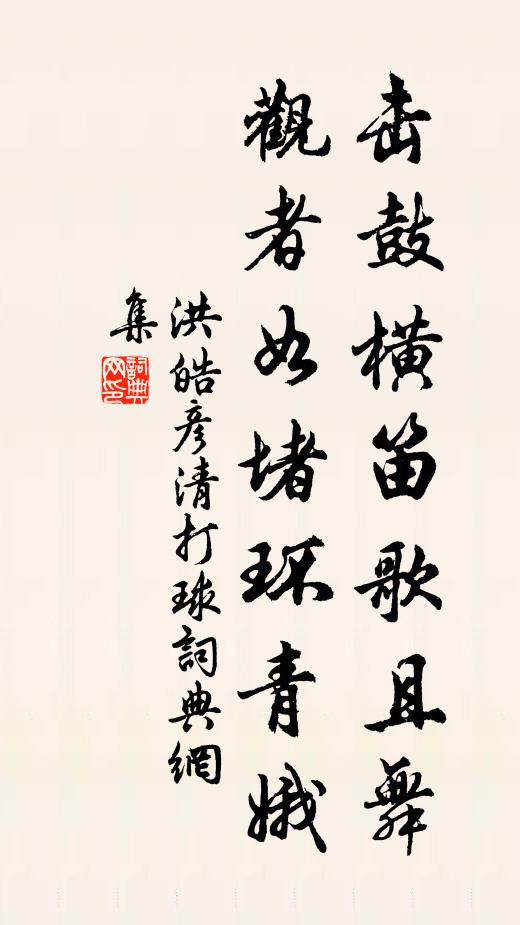 击鼓横笛歌且舞
觀者如堵环青娥
洪皓彦清打球詞典網
集
詞典
网印